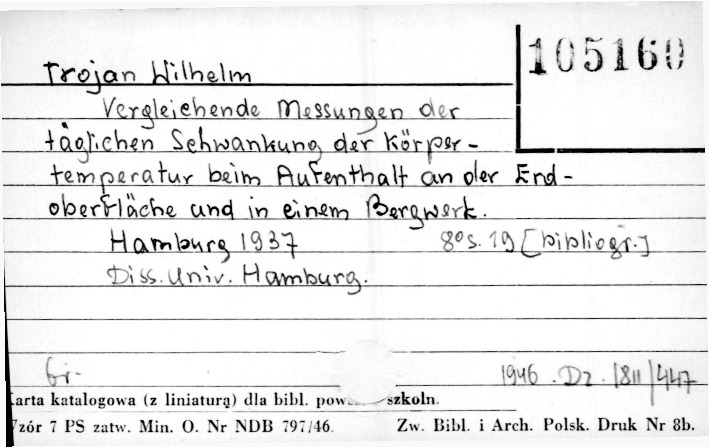 105160
Trojan Wilhelm
Vergleichende Messungen der
täglichen Schwankung der Körper-
temperatur beim Aufenthalt an der End-
oberfläche und in einem Bergwerk.
Hamburg 1937 8° s. 19 [bibliogr.]
Diss. Univ. Hamburg.
Gr. 1946. Dz. /811/447
Karta katalogowa (z liniaturą) dla bibl. pow szkoln.
Wzór 7 PS zatw. Min. O. Nr NDB 797/46. Zw. Bibl. i Arch. Polsk. Druk Nr 8b.